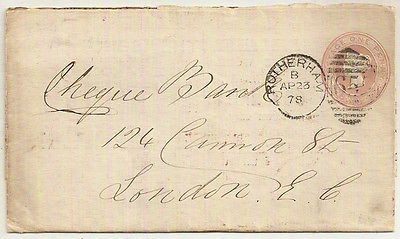 ROTHERHAM
B
AP 23
78
ONE PENNY
Cheque Bank
124 Cannon St
London. E. C.